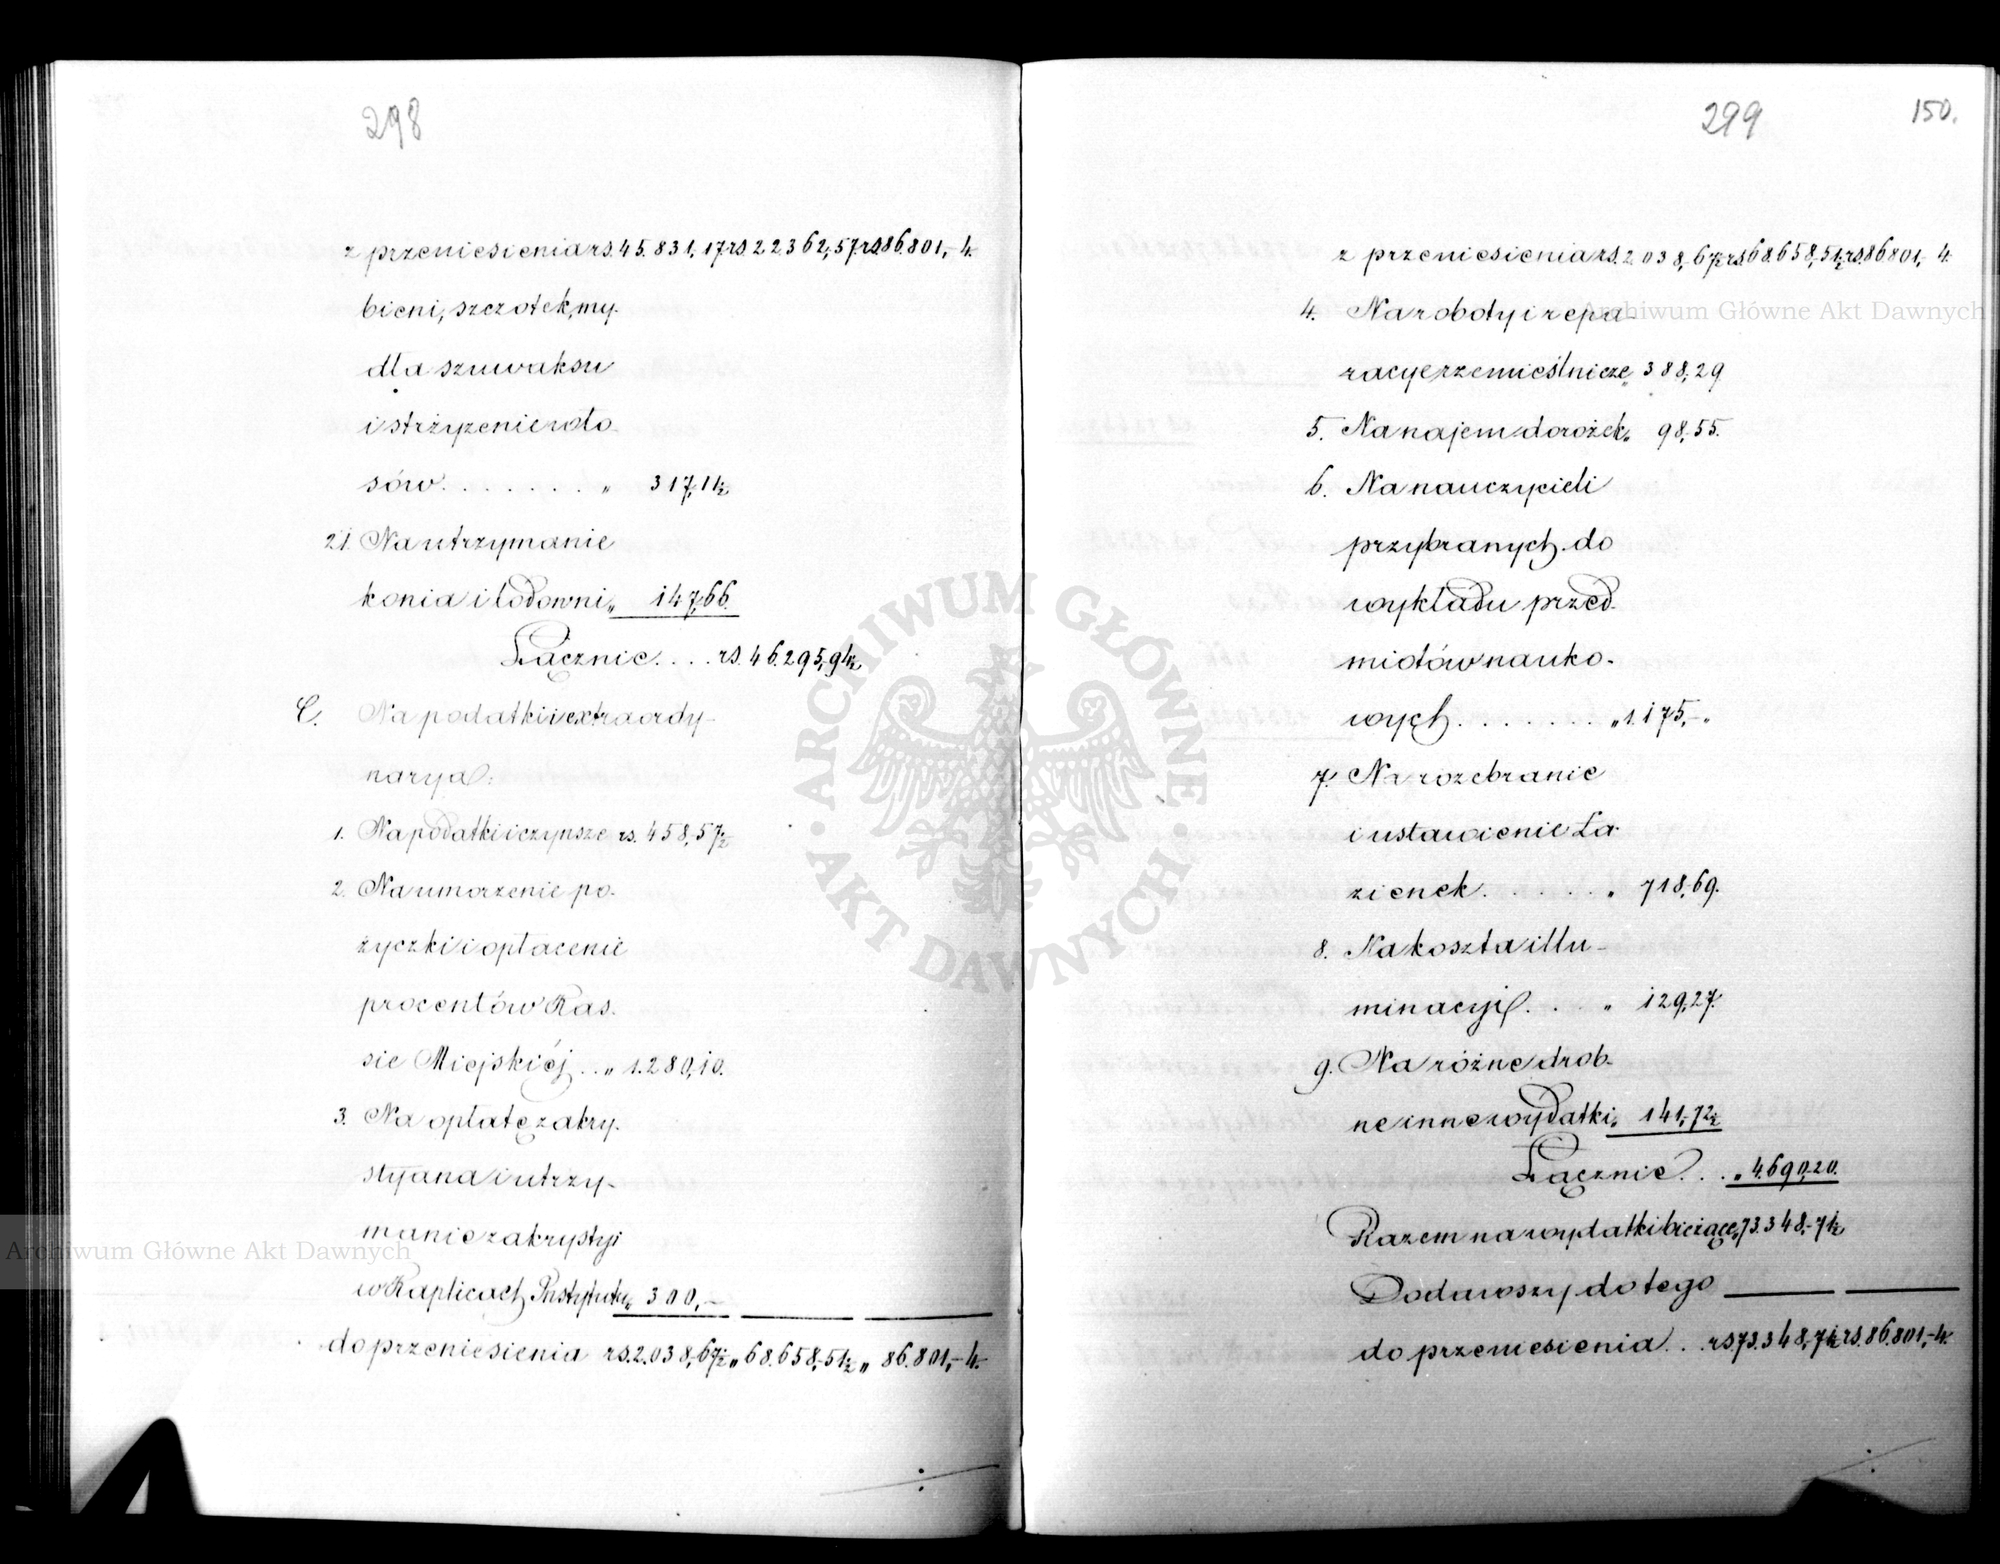 298
z przeniesienia rs. 45.831,17. rs. 22.362,57. rs. 86.801,-4.
bieni, szczotek, my-
dła szuwaksu
i strzyżenie wło-
sów . . . . . . . „ 317,11½
21. Na utrzymanie
konia i lodowni „ 147,66.
Łącznie . . . . rs. 46.295,94½
C. Na podatki i extraordy-
narya:
1. Na podatki i czynsze rs. 458,57½
2. Na umorzenie po-
życzki i opłacenie
procentów Kas-
sie Miejskiéj . . „ 1.280,10.
3. Na opłatę zakry-
styana i utrzy-
manie zakrystyi
w Kaplicach Instytutu „ 300,-
do przeniesienia rs. 2.038,67½ „ 68.658,51½ „ 86.801,-4.
299 150.
z przeniesienia rs. 2.038,67½ rs. 68.658,51½ rs. 86.801,- 4.
4. Na roboty i repa-
racye rzemieślnicze „ 388,29.
5. Na najem dorożek „ 98,55.
6. Na nauczycieli
przybranych do
wykładu przed-
miotów nauko-
wych . . . . . . . „ 1.175,- „
7. Na rozebranie
i ustawienie Ła-
zienek . . . . . . „ 718,69.
8. Na koszta illu-
minacyi . . . . „ 129,27.
9. Na różne drob-
ne inne wydatki „ 141,72½
Łącznie . . . „ 4.690,20.
Razem na wydatki bieżące „ 73.348,71½
Dodawszy do tego
do przeniesienia . . . rs. 73.348,71½ rs. 86.801,-4.
Archiwum Główne Akt Dawnych
Archiwum Główne Akt Dawnych
ARCHIWUM GŁÓWNE
AKT DAWNYCH